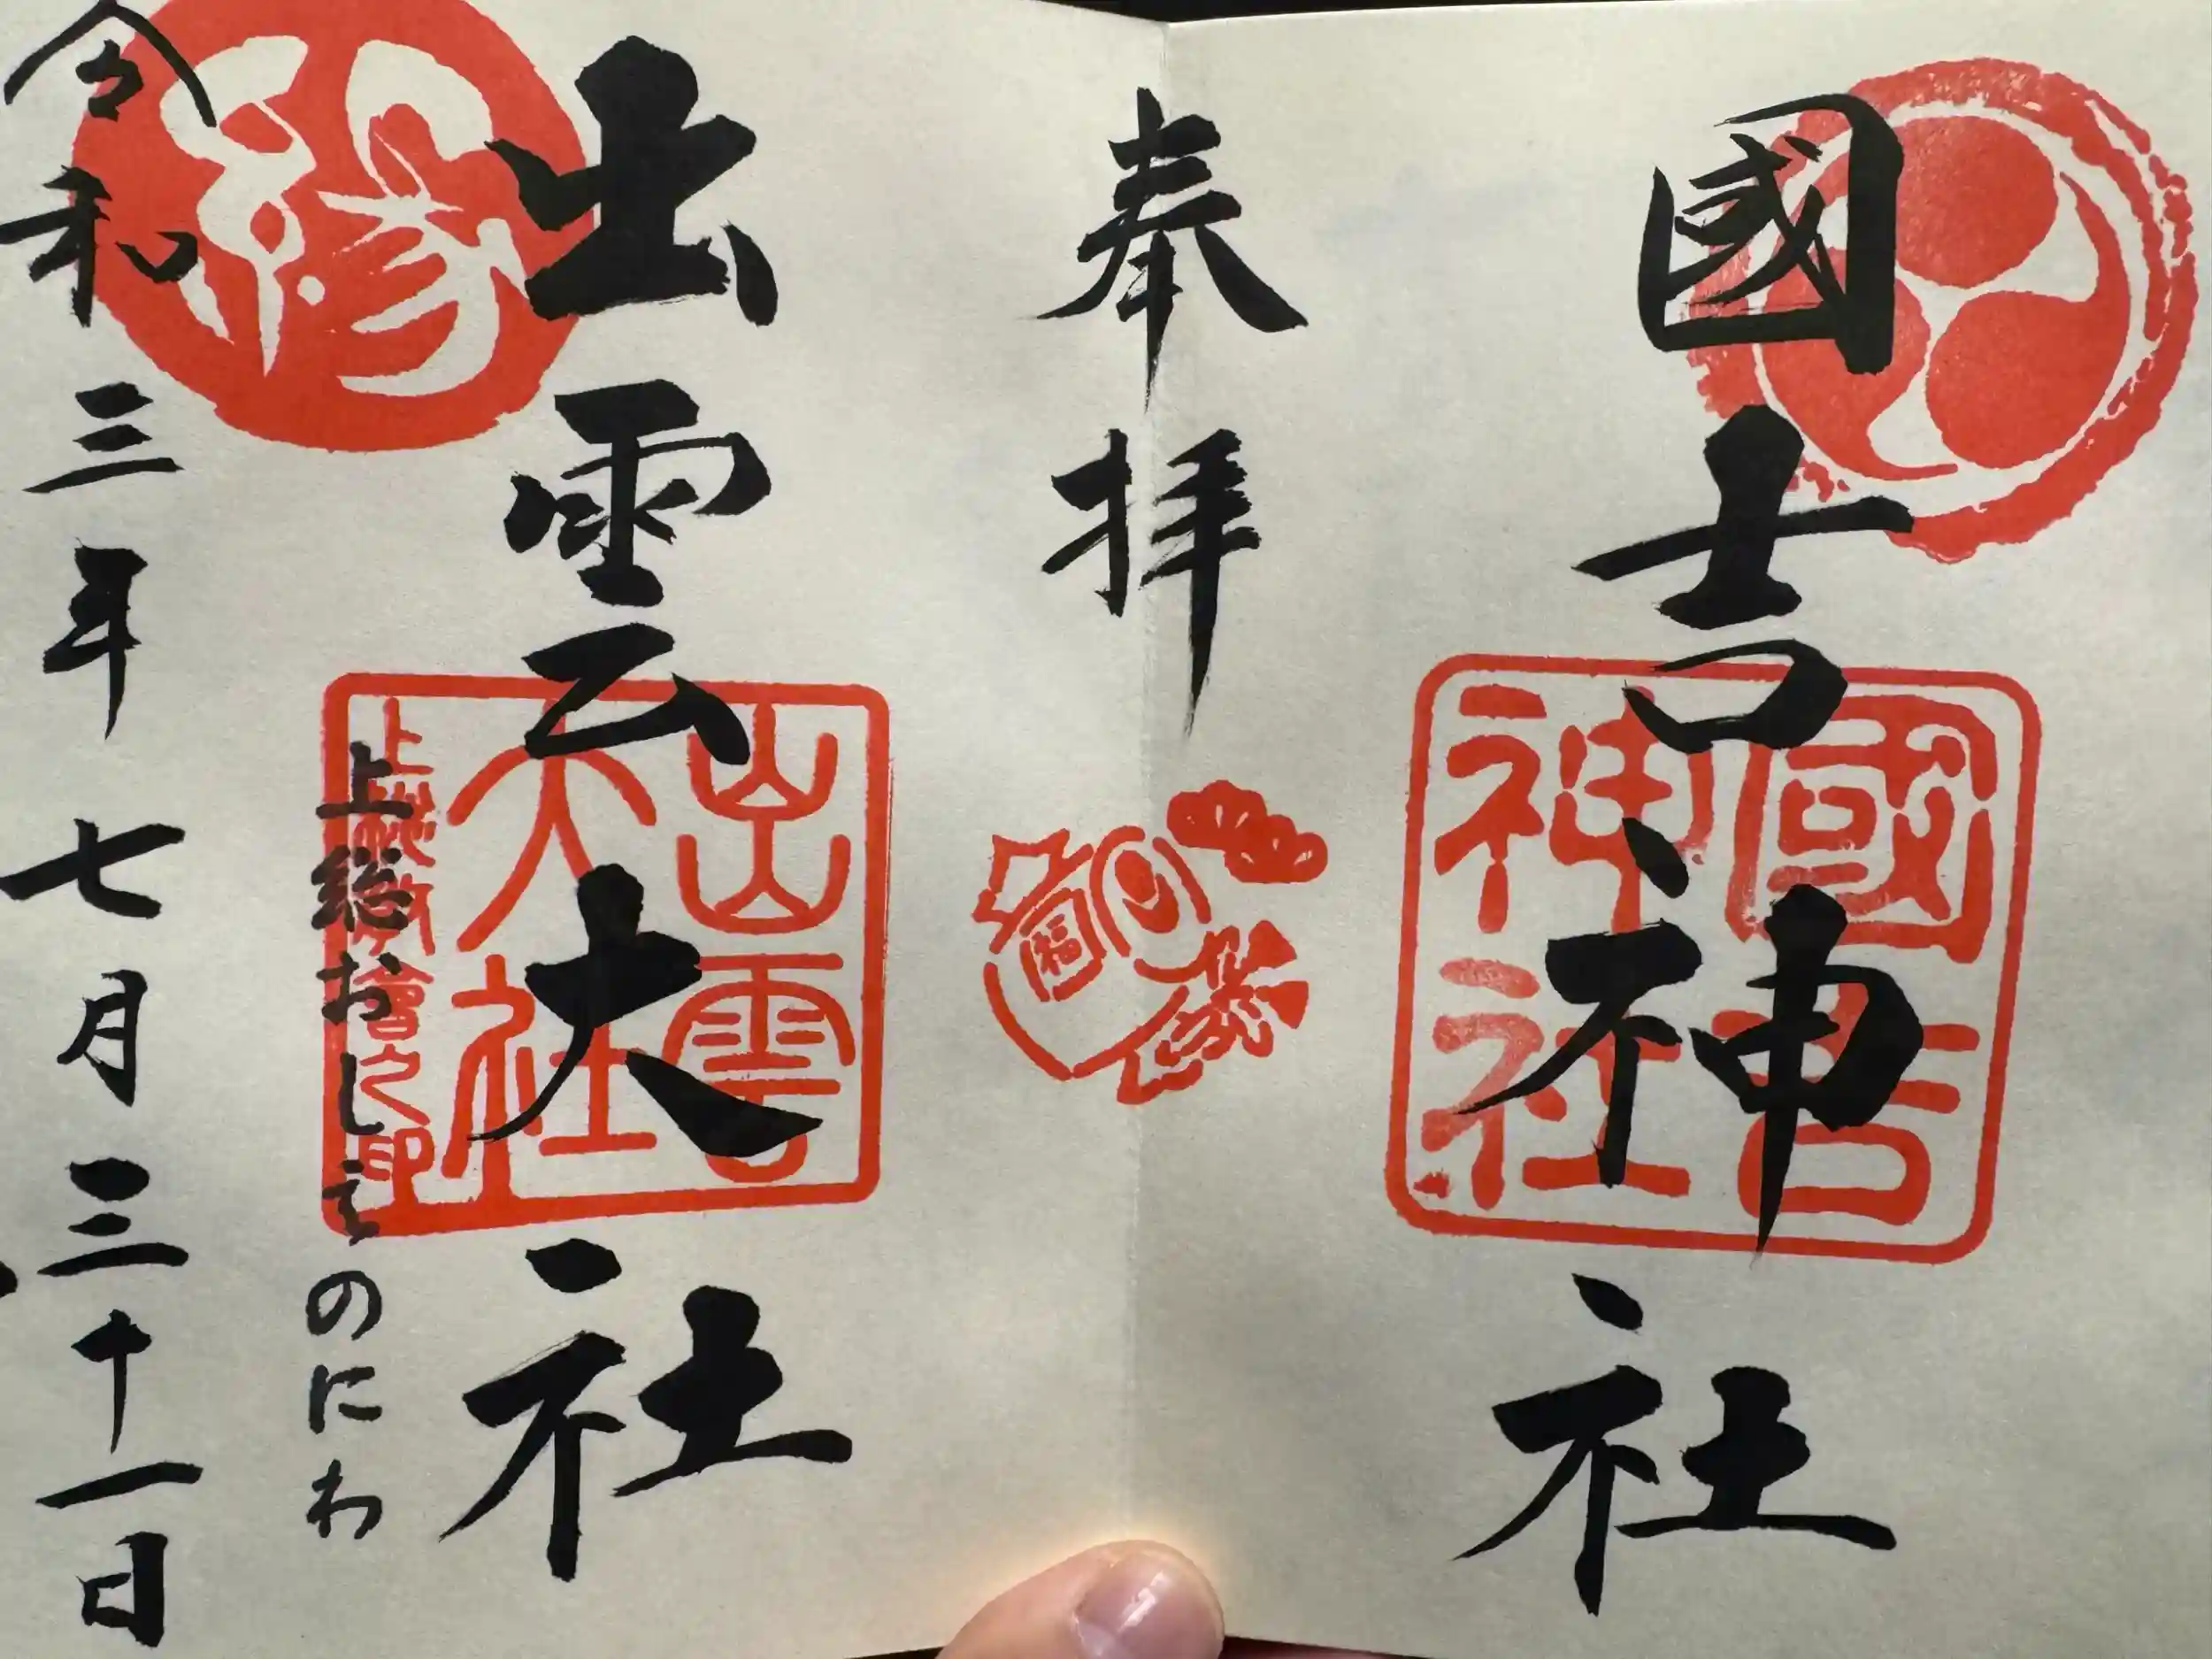 國吉神社
國吉
神社
奉拝
福
出雲大社
出雲
大社
上総教會之印
上総おしえのにわ
縁
令和三年七月三十一日